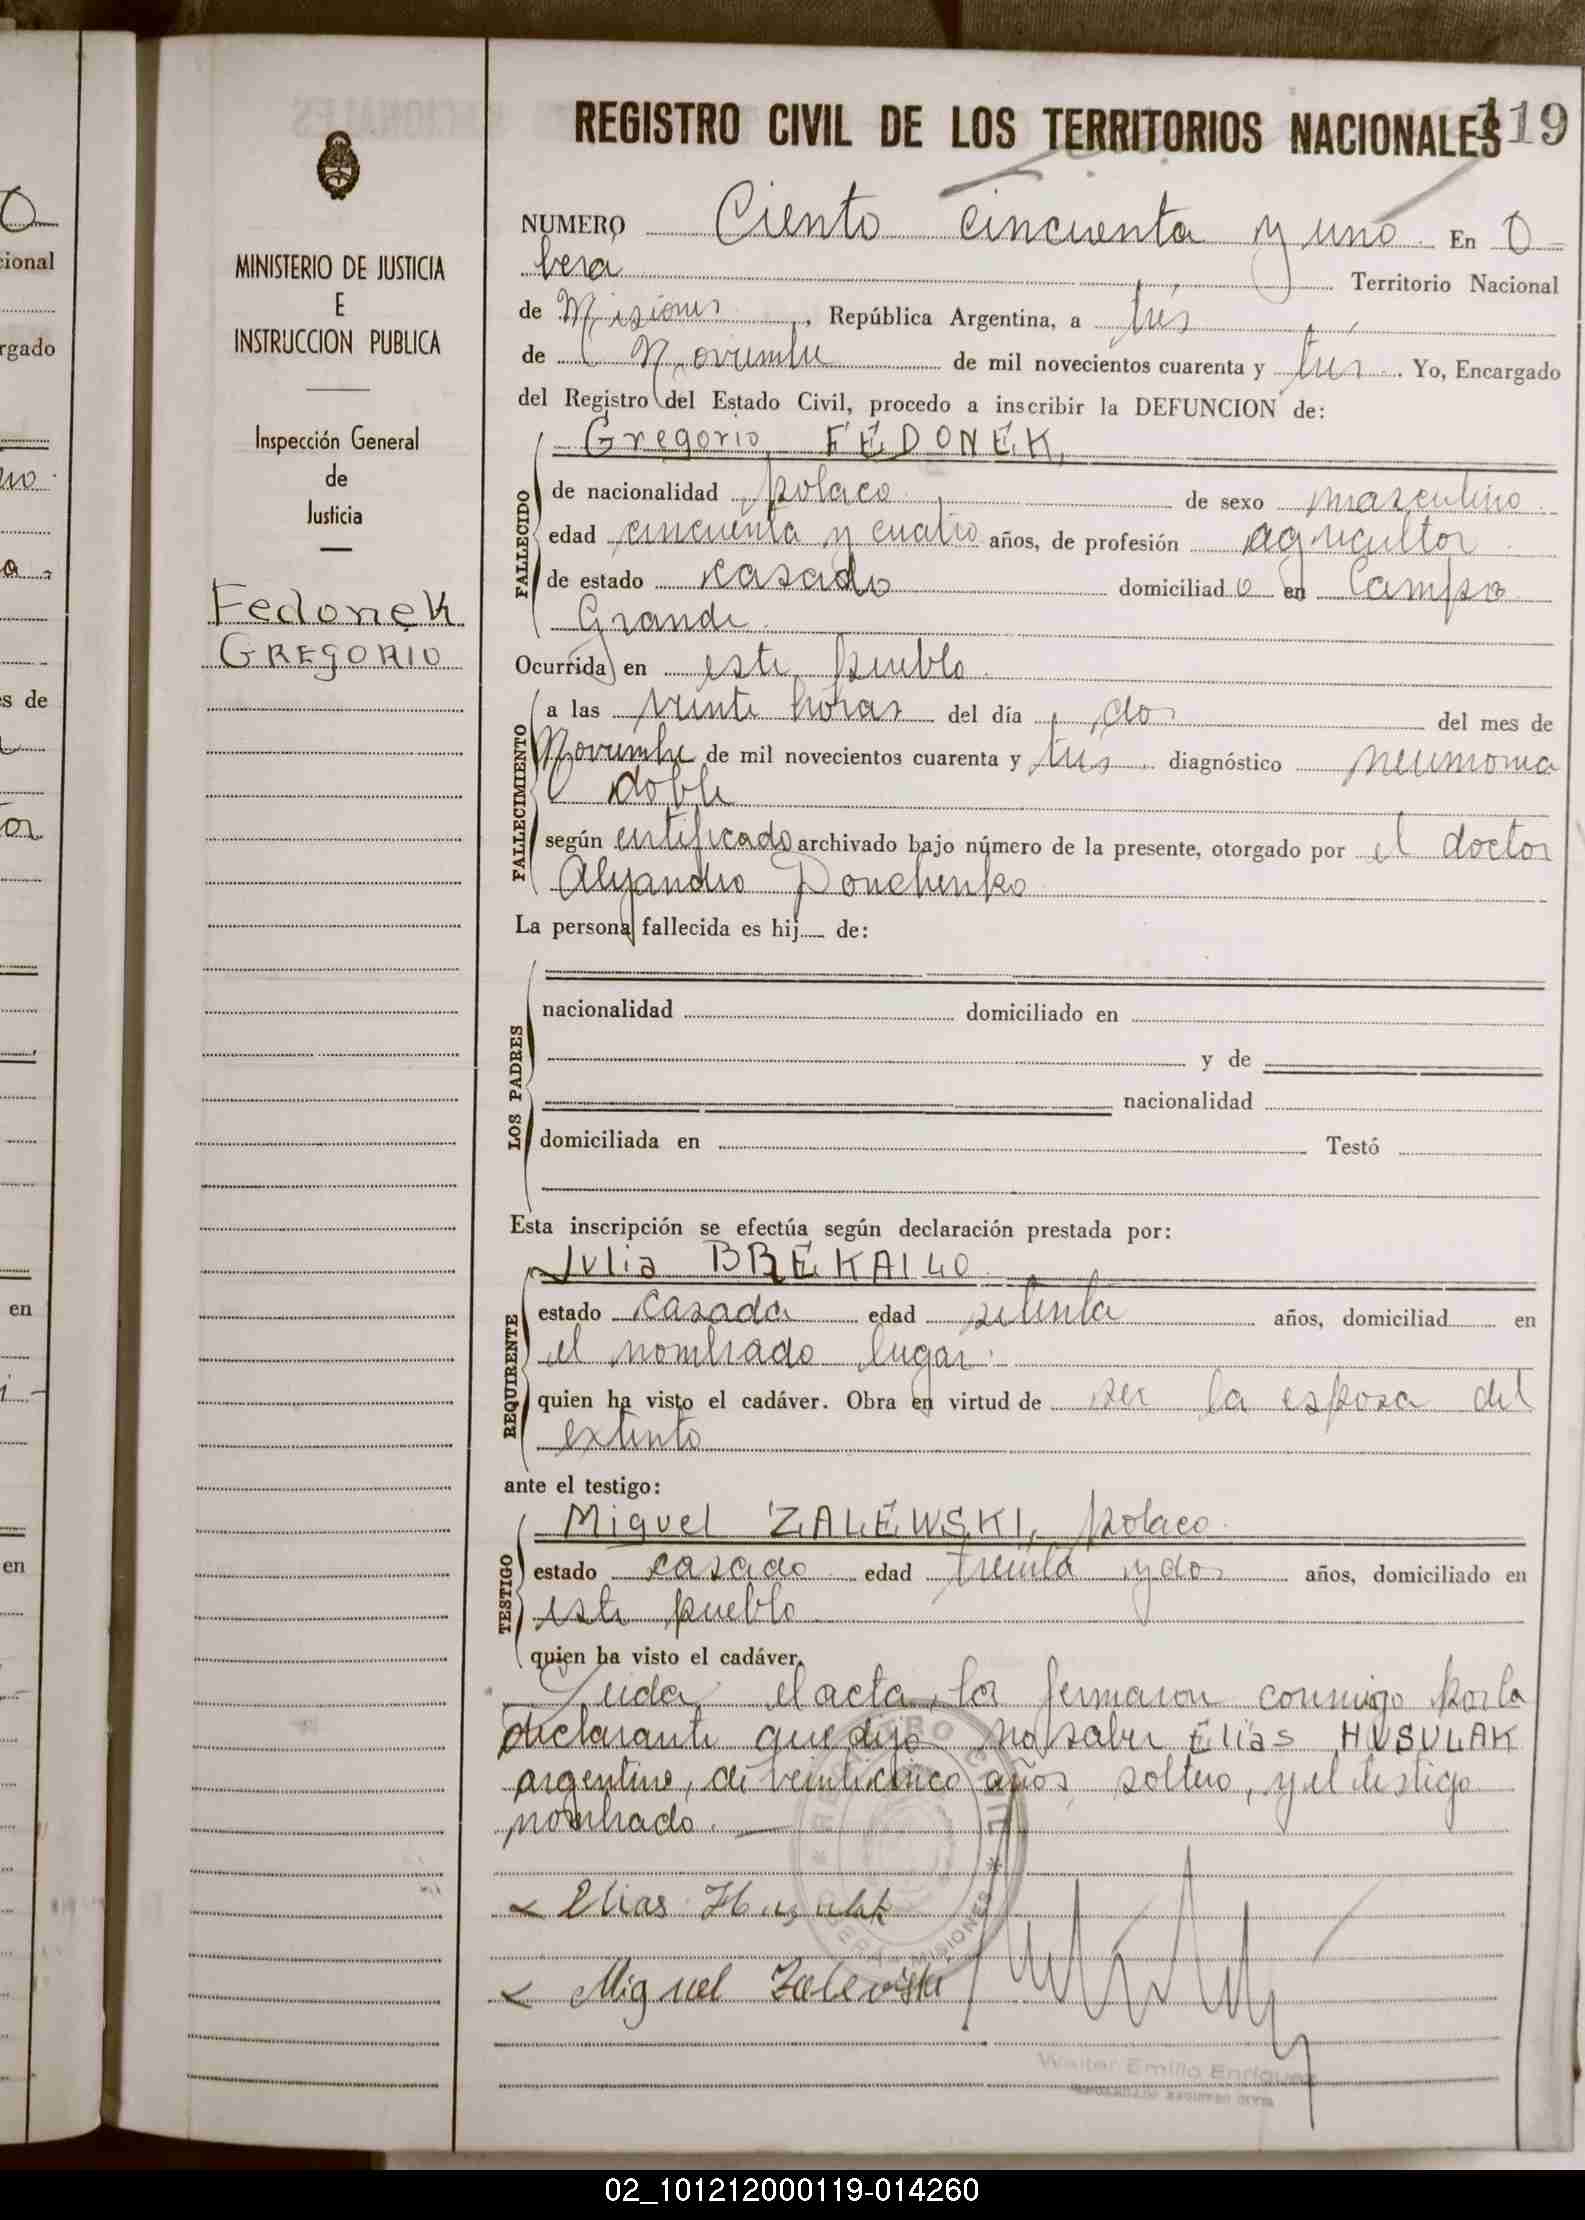 REGISTRO CIVIL DE LOS TERRITORIOS NACIONALES 119
MINISTERIO DE JUSTICIA
E
INSTRUCCION PUBLICA
Inspección General
de
Justicia
Fedonek
GREGORIO
NUMERO Ciento cincuenta y uno En O
bera Territorio Nacional
de Misiones, República Argentina, a tres
de Noviembre de mil novecientos cuarenta y tres. Yo, Encargado
del Registro del Estado Civil, procedo a inscribir la DEFUNCION de:
Gregorio FEDONEK,
FALLECIDO
de nacionalidad polaco de sexo masculino
edad cincuenta y cuatro años, de profesión agricultor
de estado casado domiciliado en Campo
Grande
Ocurrida en este pueblo
FALLECIMIENTO
a las veinte horas del día dos del mes de
Noviembre de mil novecientos cuarenta y tres diagnóstico neumonia
doble
según certificado archivado bajo número de la presente, otorgado por el doctor
Alejandro Donchenko
La persona fallecida es hij de:
LOS PADRES
nacionalidad domiciliado en
y de
nacionalidad
domiciliada en Testó
Esta inscripción se efectúa según declaración prestada por:
Julia BREKAILO
REQUIRENTE
estado casada edad setenta años, domiciliad en
el nombrado lugar.
quien ha visto el cadáver. Obra en virtud de ser la esposa del
extinto
ante el testigo:
Miguel ZALEWSKI, polaco
TESTIGO
estado casado edad treinta y dos años, domiciliado en
este pueblo
quien ha visto el cadáver.
Leida el acta, la firmaron conmigo por la
declarante que dijo no saber Elias HUSULAK
argentino, de veinticinco años soltero, y el testigo
nombrado.
Elias Husulak
Miguel Zalewski
REGISTRO CIVIL
OBERA MISIONES
Walter Emilio Enriquez
02_101212000119-014260